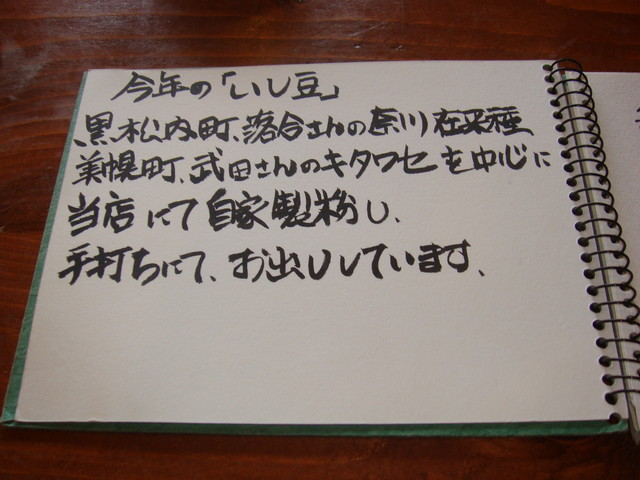 今年の「いし豆」
黒松内町、落合さんの奈川在来種
美幌町、武田さんのキタワセを中心に
当店にて自家製粉し、
手打ちにて、お出ししています、